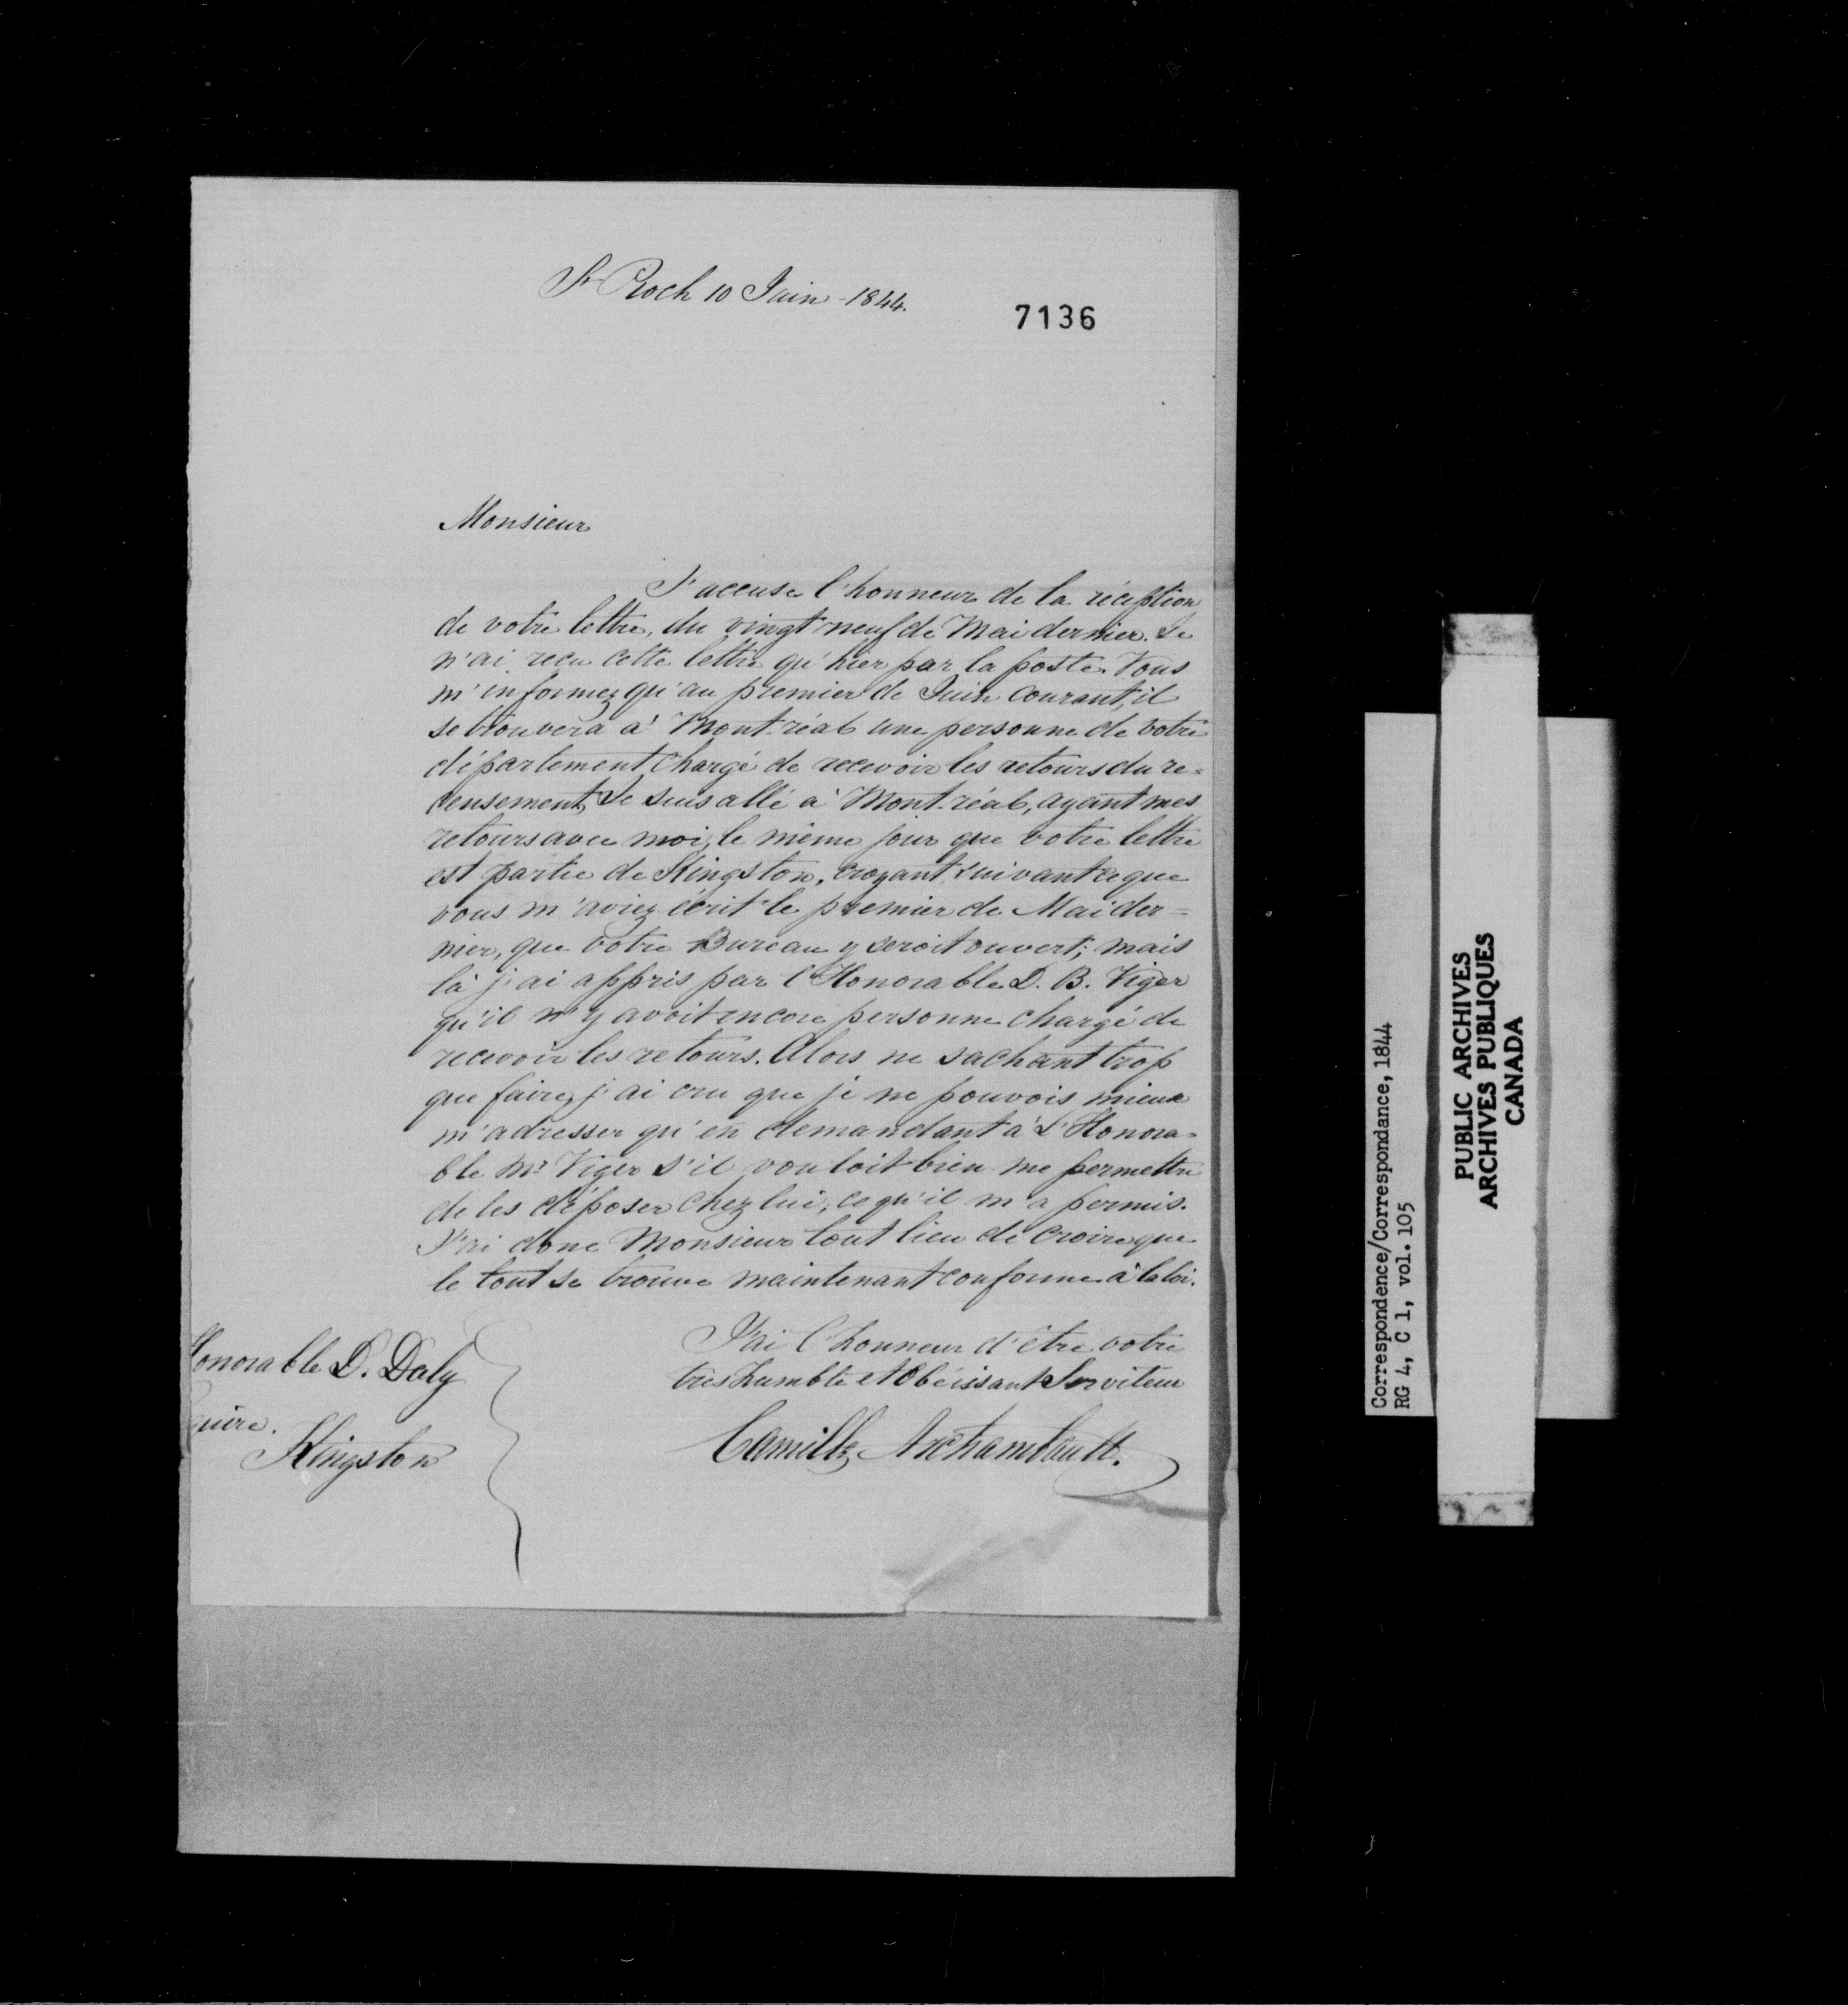 St Roch 10 Juin 1844.
7136
Monsieur
J'accuse l'honneur de la réception
de votre lettre, du vingt neuf de Mai dernier. Je
n'ai reçu cette lettre qu'hier par la poste. Vous
m'informez qu'au premier de Juin courant, il
se trouvera à Mont-réal une personne de votre
département chargé de recevoir les retours du re=
censement, Je suis allé à Mont-réal, ayant mes
retours avec moi, le même jour que votre lettre
est partie de Kingston, croyant suivant ce que
vous m'aviez écrit le premier de Mai der=
nier, que votre Bureau y seroit ouvert; mais
là j'ai appris par l'Honorable D. B. Viger
qu'il n'y avoit encore personne chargé de
recevoir les retours. Alors ne sachant trop
que faire, j'ai cru que je ne pouvois mieux
m'adresser qu'en demandant à L'Honora=
ble Mr Viger s'il vouloit bien me permettre
de les déposer chez lui, ce qu'il m'a permis.
J'ai donc Monsieur tout lieu de croire que
le tout se trouve maintenant conforme à la loi.
J'ai l'honneur d'être votre
très humble et Obéissant Serviteur
Camille Archambault.
Honorable D. Daly
quire.
Kingston
Correspondence/Correspondance, 1844
RG 4, C 1, vol. 105
PUBLIC ARCHIVES
ARCHIVES PUBLIQUES
CANADA